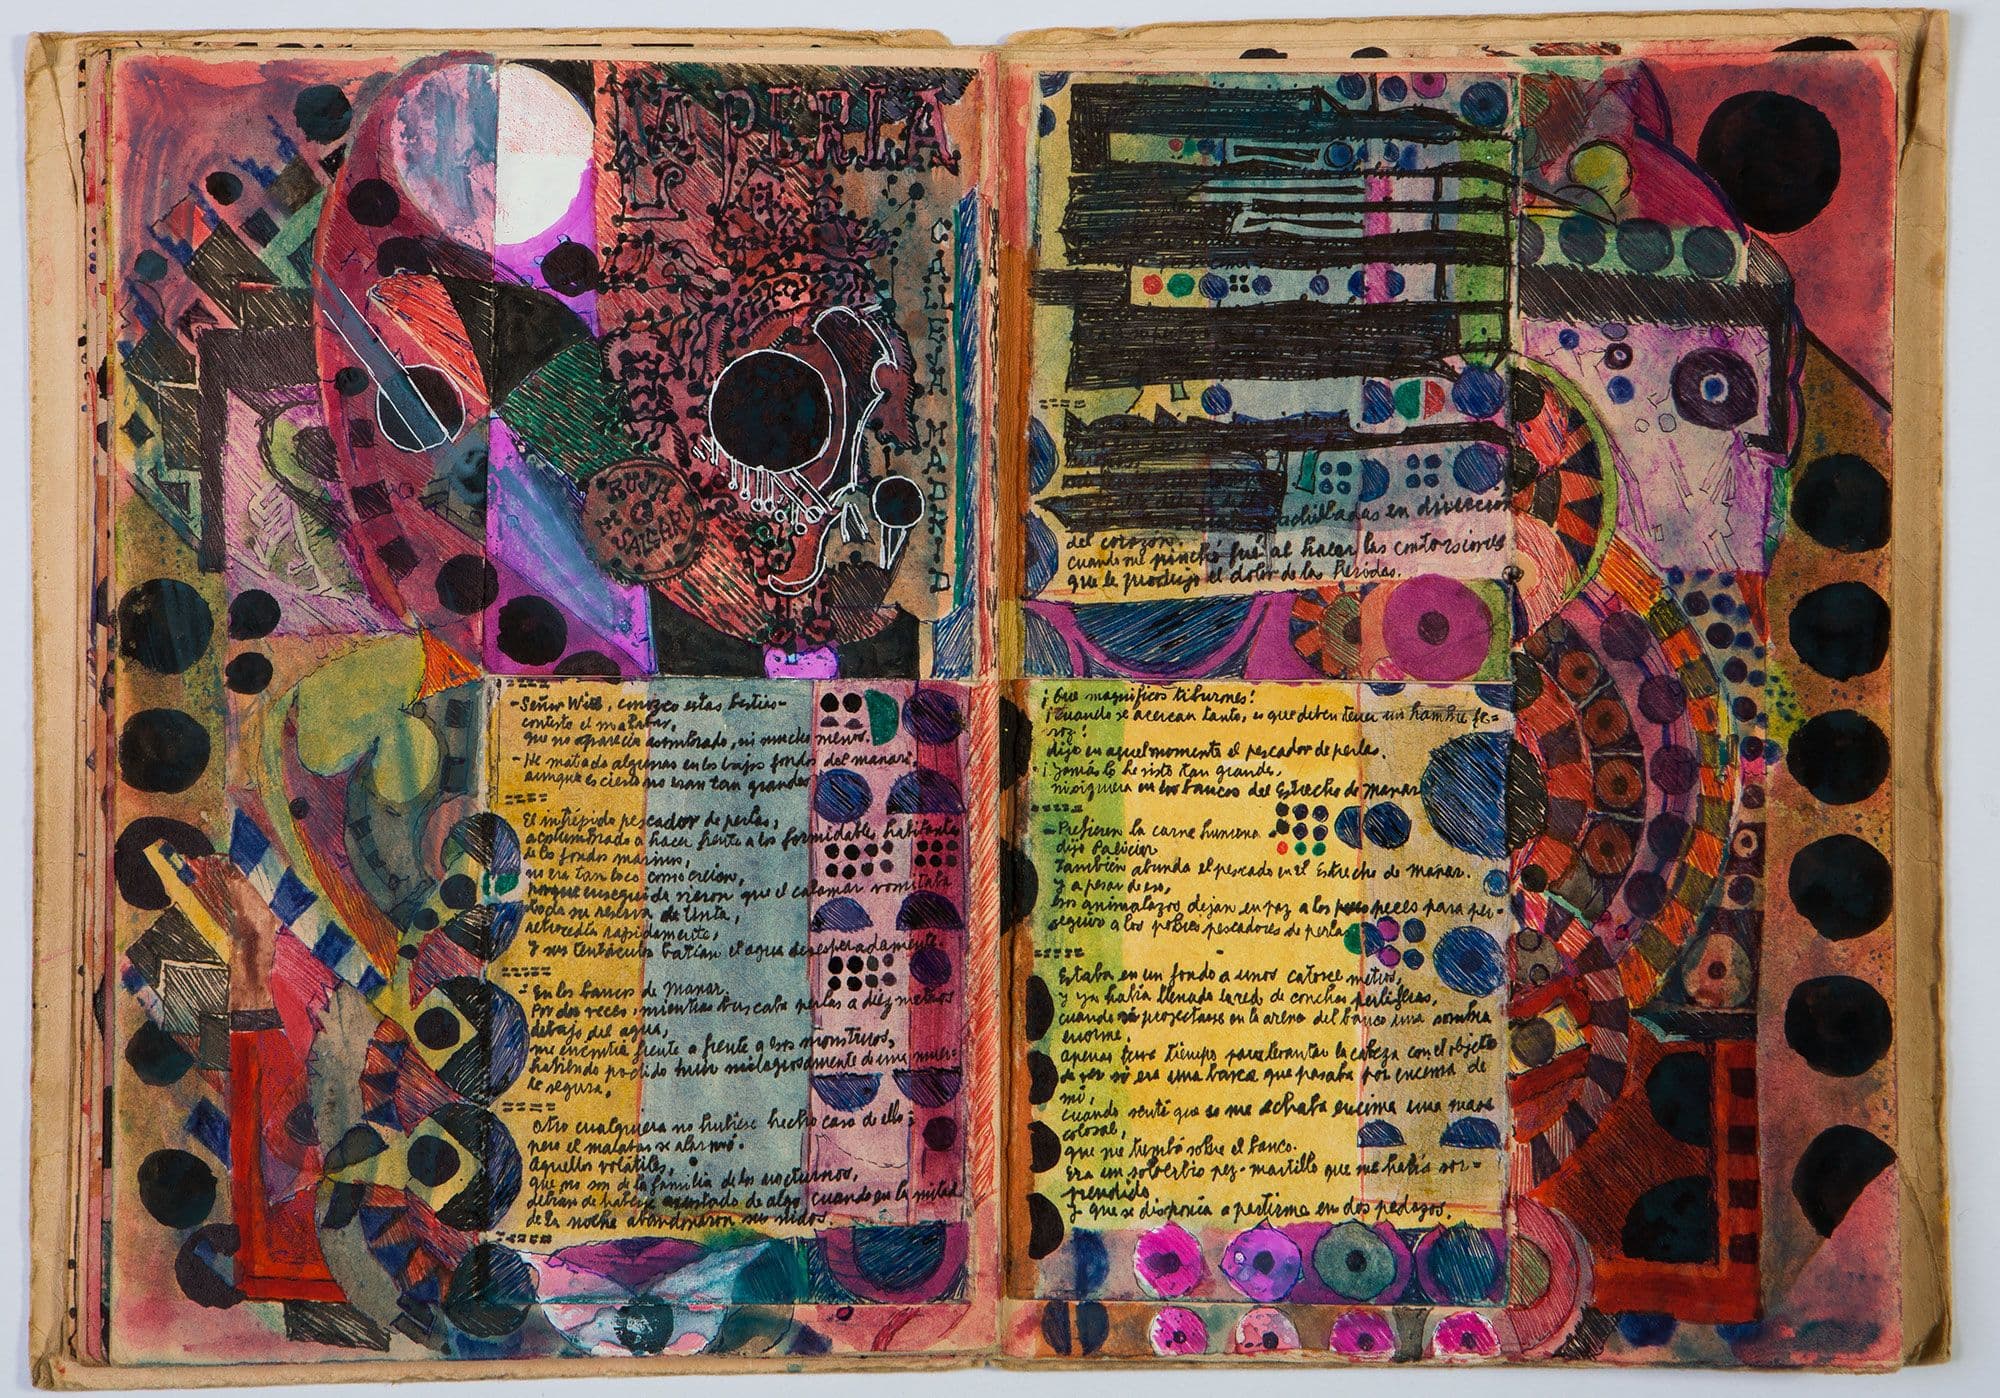 LA PERLA
CALLEJA
MADRID
achilladas en dirección
del corazón.
cuando me pinchó fué al hacer las contorsiones
que le produjo el dolor de las heridas.
-Señor Will, conozco estas bestias-
contesto el malabar,
que no aparecía asombrado, ni mucho menos.
-He matado algunas en los bajos fondos del manar,
aunque es cierto no eran tan grandes
El intrépido pescador de perlas,
acostumbrado a hacer frente a los formidables habitantes
de los fondos marinos,
no era tan loco como creían,
porque enseguida vieron que el calamar vomitaba
toda su reserva de tinta,
retrocedía rapidamente,
y sus tentáculos batían el agua desesperadamente.
- En los bancos de Manar.
Por dos veces, mientras buscaba perlas a diez metros
debajo del agua,
me encontré frente a frente a esos monstruos,
habiendo podido huir milagrosamente de una muer-
te segura.
otro cualquiera no hubiese hecho caso de ello;
pero el malabar se alarmó.
Aquellos volátiles,
que no son de la familia de los nocturnos,
debían de haberse asustado de algo cuando en la mitad
de la noche abandonaron sus nidos.
¡Que magnificos tiburones!
¡Cuando se acercan tanto, es que deben tener un hambre fe-
roz!
dijo en aquel momento el pescador de perlas.
- ¡Jamás lo he visto tan grande,
ni siquiera en los bancos del Estrecho de Manar
- Prefieren la carne humana
dijo Palicier
También abunda el pescado en el Estrecho de Manar.
y a pesar de eso,
los animalazos dejan en paz a los peces para per-
seguir a los pobres pescadores de perlas
Estaba en un fondo a unos catorce metros,
y ya había llenado la red de conchas perlíferas,
cuando ví proyectarse en la arena del banco una sombra
enorme.
Apenas tuve tiempo para levantar la cabeza con el objeto
de ver si era una barca que pasaba por encima de
mí,
cuando sentí que se me echaba encima una masa
colosal,
que me tumbó sobre el banco.
Era un soberbio pez-martillo que me había sor-
prendido
y que se disponía a partirme en dos pedazos.